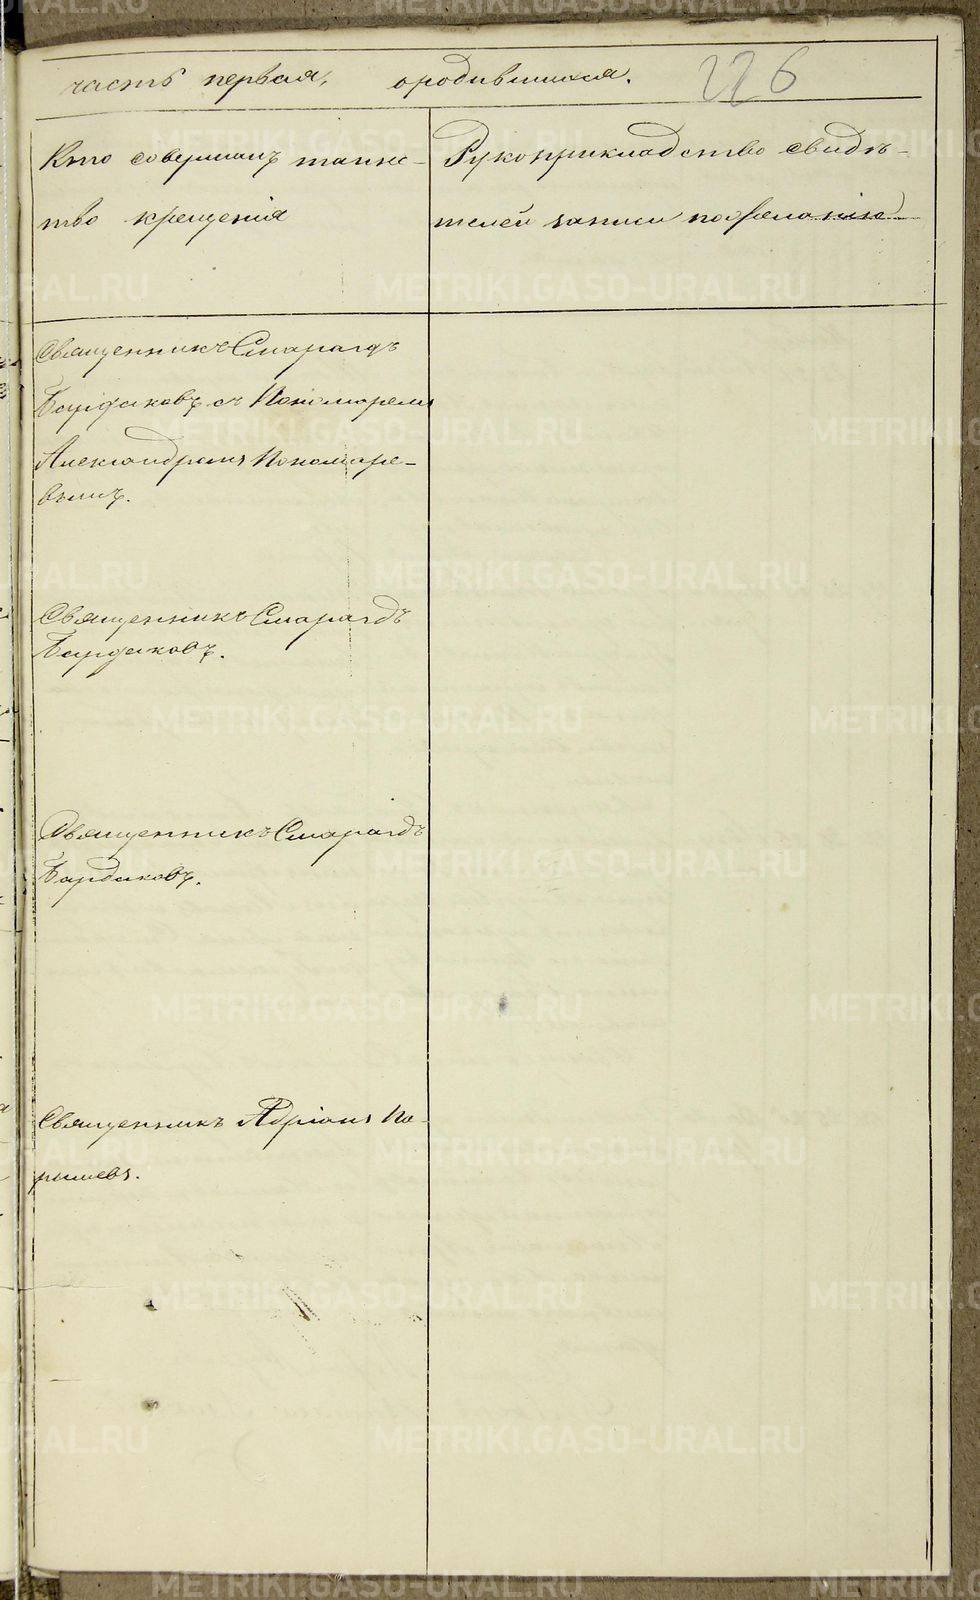 часть первая, о родившихся. 226
Кто совершалъ таинс-
тво крещенія
Рукоприкладство свидѣ-
телей записи по желанію
Священникъ Смарагдъ
Бардаковъ съ Пономаремъ
Александромъ Пономаре-
вымъ.
Священникъ Смарагдъ
Бардаковъ.
Священникъ Смарагдъ
Бардаковъ.
Священникъ Адріанъ По-
рышевъ.
METRIKI.GASO-URAL.RU